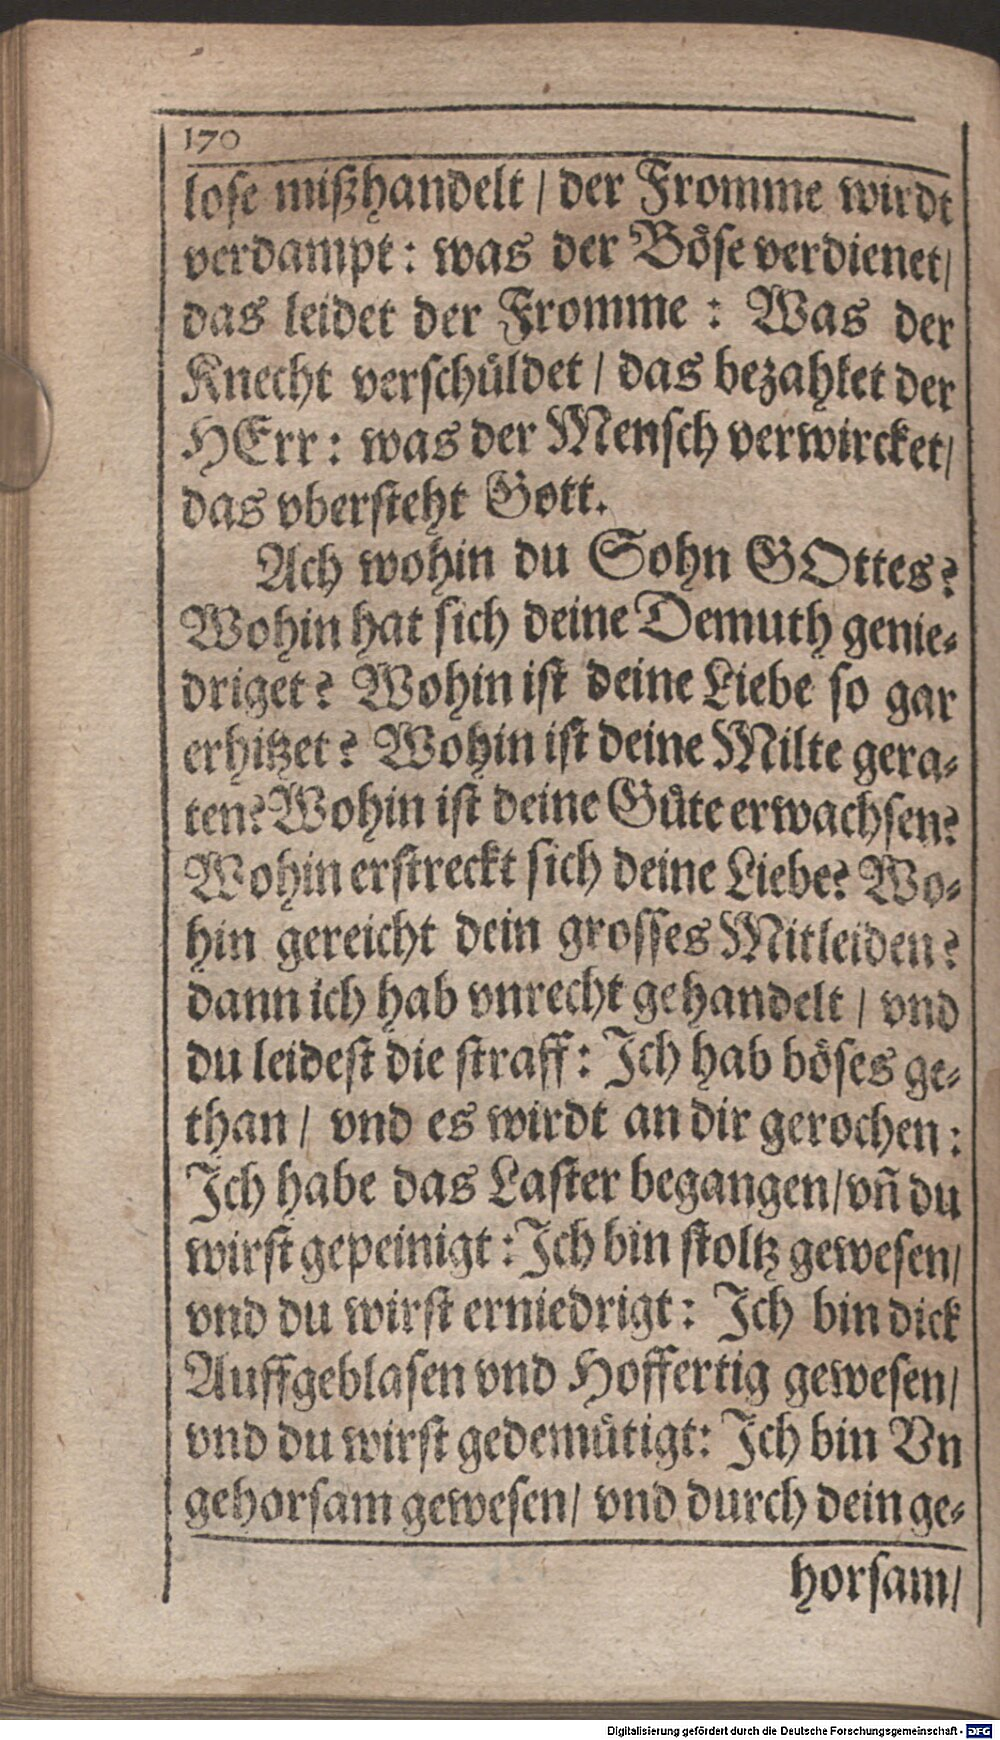 170
lose mißhandelt / der Fromme wirdt
verdampt: was der Böse verdienet/
das leidet der Fromme : Was der
Knecht verschüldet / das bezahlet der
HErr: was der Mensch verwircket/
das vbersteht Gott.
Ach wohin du Sohn GOttes?
Wohin hat sich deine Demuth genie-
driget? Wohin ist deine Liebe so gar
erhitzet? Wohin ist deine Milte gera-
ten? Wohin ist deine Güte erwachsen?
Wohin erstreckt sich deine Liebe? Wo-
hin gereicht dein grosses Mitleiden?
dann ich hab vnrecht gehandelt / vnd
du leidest die straff: Ich hab böses ge-
than / vnd es wirdt an dir gerochen:
Ich habe das Laster begangen/vñ du
wirst gepeinigt: Ich bin stoltz gewesen/
vnd du wirst erniedrigt: Ich bin dick
Auffgeblasen vnd Hoffertig gewesen/
vnd du wirst gedemütigt: Ich bin Vn
gehorsam gewesen/ vnd durch dein ge-
horsam/
Digitalisierung gefördert durch die Deutsche Forschungsgemeinschaft - DFG